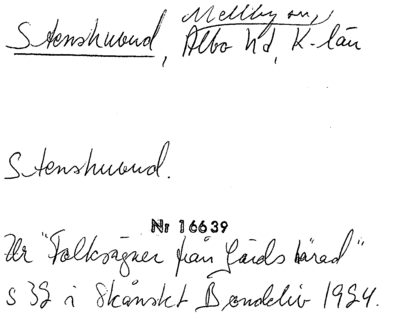 Stenshuvud, Mellby sn,
Albo hd, K-län
Stenshuvud.
Nr 16639
Ur "Folksägner från Gärds härad"
s 32 i Skånskt Bondeliv 1924.